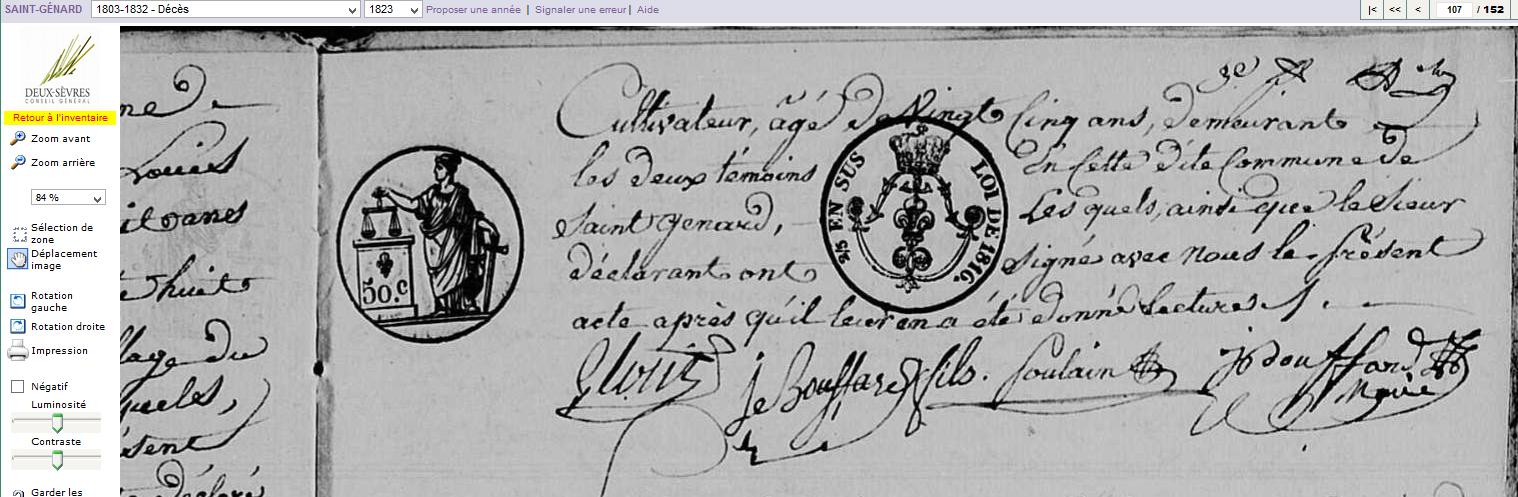 SAINT-GÉNARD 1803-1832 - Décès 1823 Proposer une année | Signaler une erreur | Aide |< << < 107 / 152
DEUX-SÈVRES
CONSEIL GÉNÉRAL
Retour à l'inventaire
Zoom avant
Zoom arrière
84 %
Sélection de
zone
Déplacement
image
Rotation
gauche
Rotation droite
Impression
Négatif
Luminosité
Contraste
Garder les
ne
Louis
huit
lage du
quels,
sent
déclaré
50.c
Cultivateur, âgé de Vingt Cinq ans, demeurant
les deux témoins En Cette dite Commune de
Saint Genard, - Les quels, ainsi que le Sieur
déclarant ont Signé avec Nous le présent
acte après qu'il leur en a été donné Lecture
2/5 EN SUS LOI DE 1816.
J Bouffard fils. Poulain
Bouffard
Maire